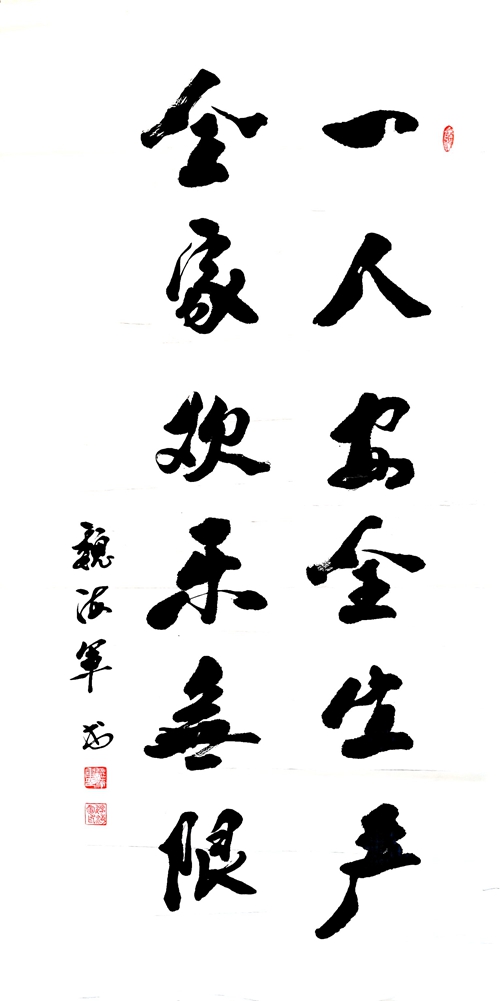 一人安全生产
全家欢乐無限
魏海軍书